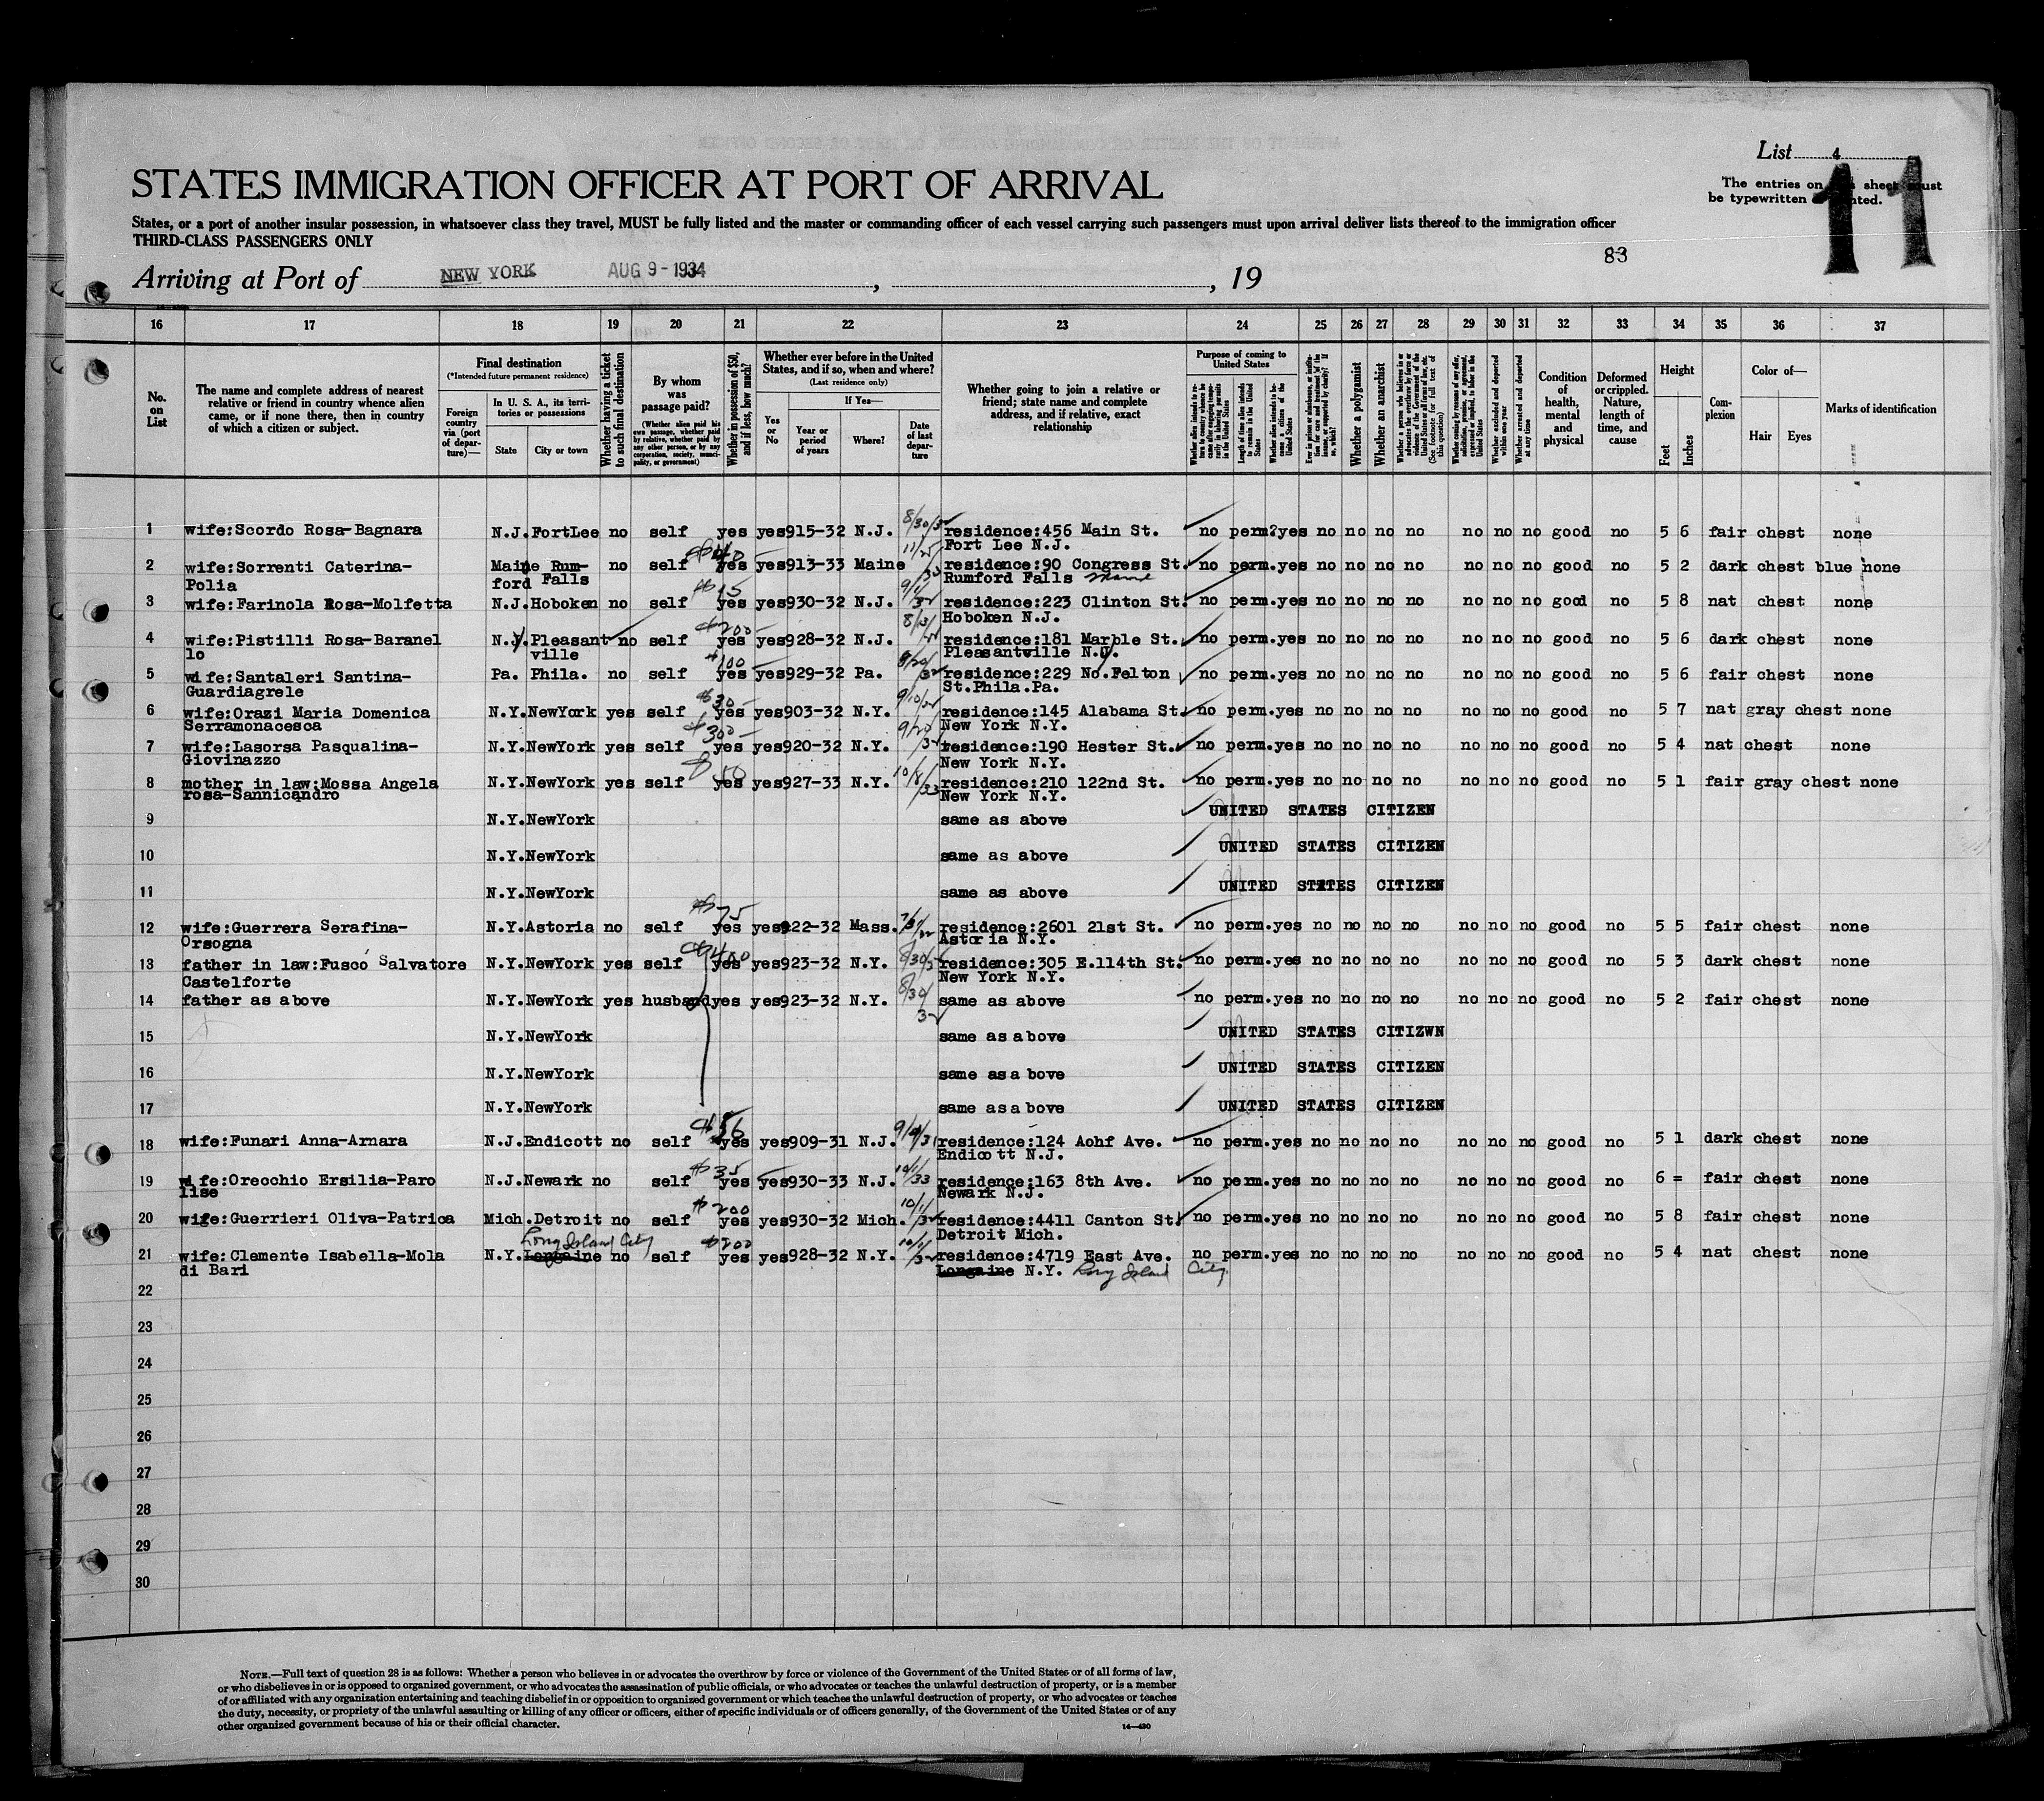 List 4
STATES IMMIGRATION OFFICER AT PORT OF ARRIVAL
The entries on sheet must
be typewritten
11
States, or a port of another insular possession, in whatsoever class they travel, MUST be fully listed and the master or commanding officer of each vessel carrying such passengers must upon arrival deliver lists thereof to the immigration officer
THIRD-CLASS PASSENGERS ONLY
83
Arriving at Port of NEW YORK AUG 9-1934, , 19
16 17 18 19 20 21 22 23 24 25 26 27 28 29 30 31 32 33 34 35 36 37
No. on List
The name and complete address of nearest relative or friend in country whence alien came, or if none there, then in country of which a citizen or subject.
Final destination
(*Intended future permanent residence)
Foreign country via (port of departure)—
In U. S. A., its territories or possessions
State
City or town
Whether having a ticket to such final destination
By whom was passage paid?
(Whether alien paid his own passage, whether paid by relative, whether paid by any other person, or by any corporation, society, municipality, or government)
Whether in possession of $50, and if less, how much?
Whether ever before in the United States, and if so, when and where?
(Last residence only)
Yes or No
If Yes—
Year or period of years
Where?
Date of last departure
Whether going to join a relative or friend; state name and complete address, and if relative, exact relationship
Purpose of coming to United States
Length of time alien intends to remain in the United States
Whether alien intends to become a citizen of the United States
Whether a polygamist
Whether an anarchist
Whether excluded and deported within one year
Whether arrested and deported at any time
Condition of health, mental and physical
Deformed or crippled. Nature, length of time, and cause
Height
Feet
Inches
Complexion
Color of—
Hair
Eyes
Marks of identification
1 wife:Scordo Rosa-Bagnara N.J. FortLee no self yes yes915-32 N.J. residence:456 Main St. no perm?yes no no no no no no no good no 5 6 fair chest none
Fort Lee N.J.
2 wife:Sorrenti Caterina- Maine Rum- no self $40 yes yes913-33 Maine residence:90 Congress St. no perm.yes no no no no no no no good no 5 2 dark chest blue none
Polia ford Falls Rumford Falls Maine
3 wife:Farinola Rosa-Molfetta N.J. Hoboken no self $15 yes yes930-32 N.J. residence:223 Clinton St. no perm.yes no no no no no no no good no 5 8 nat chest none
Hoboken N.J.
4 wife:Pistilli Rosa-Baranel N.Y. Pleasant no self $200 yes yes928-32 N.J. residence:181 Marble St. no perm.yes no no no no no no no good no 5 6 dark chest none
lo ville Pleasantville N.Y.
5 wife:Santaleri Santina- Pa. Phila. no self $100 yes yes929-32 Pa. residence:229 No.Felton no perm.yes no no no no no no no good no 5 6 fair chest none
Guardiagrele St.Phila.Pa.
6 wife:Orazi Maria Domenica N.Y. NewYork yes self $30 yes yes903-32 N.Y. residence:145 Alabama St. no perm.yes no no no no no no no good no 5 7 nat gray chest none
Serramonacesca New York N.Y.
7 wife:Lasorsa Pasqualina- N.Y. NewYork yes self $300 yes yes920-32 N.Y. residence:190 Hester St. no perm.yes no no no no no no no good no 5 4 nat chest none
Giovinazzo New York N.Y.
8 mother in law:Mossa Angela N.Y. NewYork yes self $50 yes yes927-33 N.Y. 10/8/33 residence:210 122nd St. no perm.yes no no no no no no no good no 5 1 fair gray chest none
rosa-Sannicandro New York N.Y.
9 N.Y. NewYork same as above UNITED STATES CITIZEN
10 N.Y. NewYork same as above UNITED STATES CITIZEN
11 N.Y. NewYork same as above UNITED STATES CITIZEN
12 wife:Guerrera Serafina- N.Y. Astoria no self $75 yes yes922-32 Mass. residence:2601 21st St. no perm.yes no no no no no no no good no 5 5 fair chest none
Orsogna Astoria N.Y.
13 father in law:Fusco Salvatore N.Y. NewYork yes self $400 yes yes923-32 N.Y. 8/30/32 residence:305 E.114th St. no perm.yes no no no no no no no good no 5 3 dark chest none
Castelforte New York N.Y.
14 father as above N.Y. NewYork yes husband yes yes923-32 N.Y. 8/30/32 same as above no perm.yes no no no no no no no good no 5 2 fair chest none
15 N.Y. NewYork same as above UNITED STATES CITIZWN
16 N.Y. NewYork same as a bove UNITED STATES CITIZEN
17 N.Y. NewYork same as a bove UNITED STATES CITIZEN
18 wife:Funari Anna-Arnara N.J. Endicott no self $56 yes yes909-31 N.J. residence:124 Aohf Ave. no perm.yes no no no no no no no good no 5 1 dark chest none
Endicott N.J.
19 wife:Orecchio Ersilia-Paro N.J. Newark no self $35 yes yes930-33 N.J. 10/1/33 residence:163 8th Ave. no perm.yes no no no no no no no good no 6 = fair chest none
lise Newark N.J.
20 wife:Guerrieri Oliva-Patrica Mich. Detroit no self $200 yes yes930-32 Mich. 10/1/32 residence:4411 Canton St. no perm.yes no no no no no no no good no 5 8 fair chest none
Long Island City Detroit Mich.
21 wife:Clemente Isabella-Mola N.Y. Longaine no self $200 yes yes928-32 N.Y. 10/1/32 residence:4719 East Ave. no perm.yes no no no no no no no good no 5 4 nat chest none
di Bari Longaine N.Y. Long Island City
22
23
24
25
26
27
28
29
30
NOTE.—Full text of question 28 is as follows: Whether a person who believes in or advocates the overthrow by force or violence of the Government of the United States or of all forms of law,
or who disbelieves in or is opposed to organized government, or who advocates the assassination of public officials, or who advocates or teaches the unlawful destruction of property, or is a member
of or affiliated with any organization entertaining and teaching disbelief in or opposition to organized government or which teaches the unlawful destruction of property, or who advocates or teaches
the duty, necessity, or propriety of the unlawful assaulting or killing of any officer or officers, either of specific individuals or of officers generally, of the Government of the United States or of any
other organized government because of his or their official character.
14—430